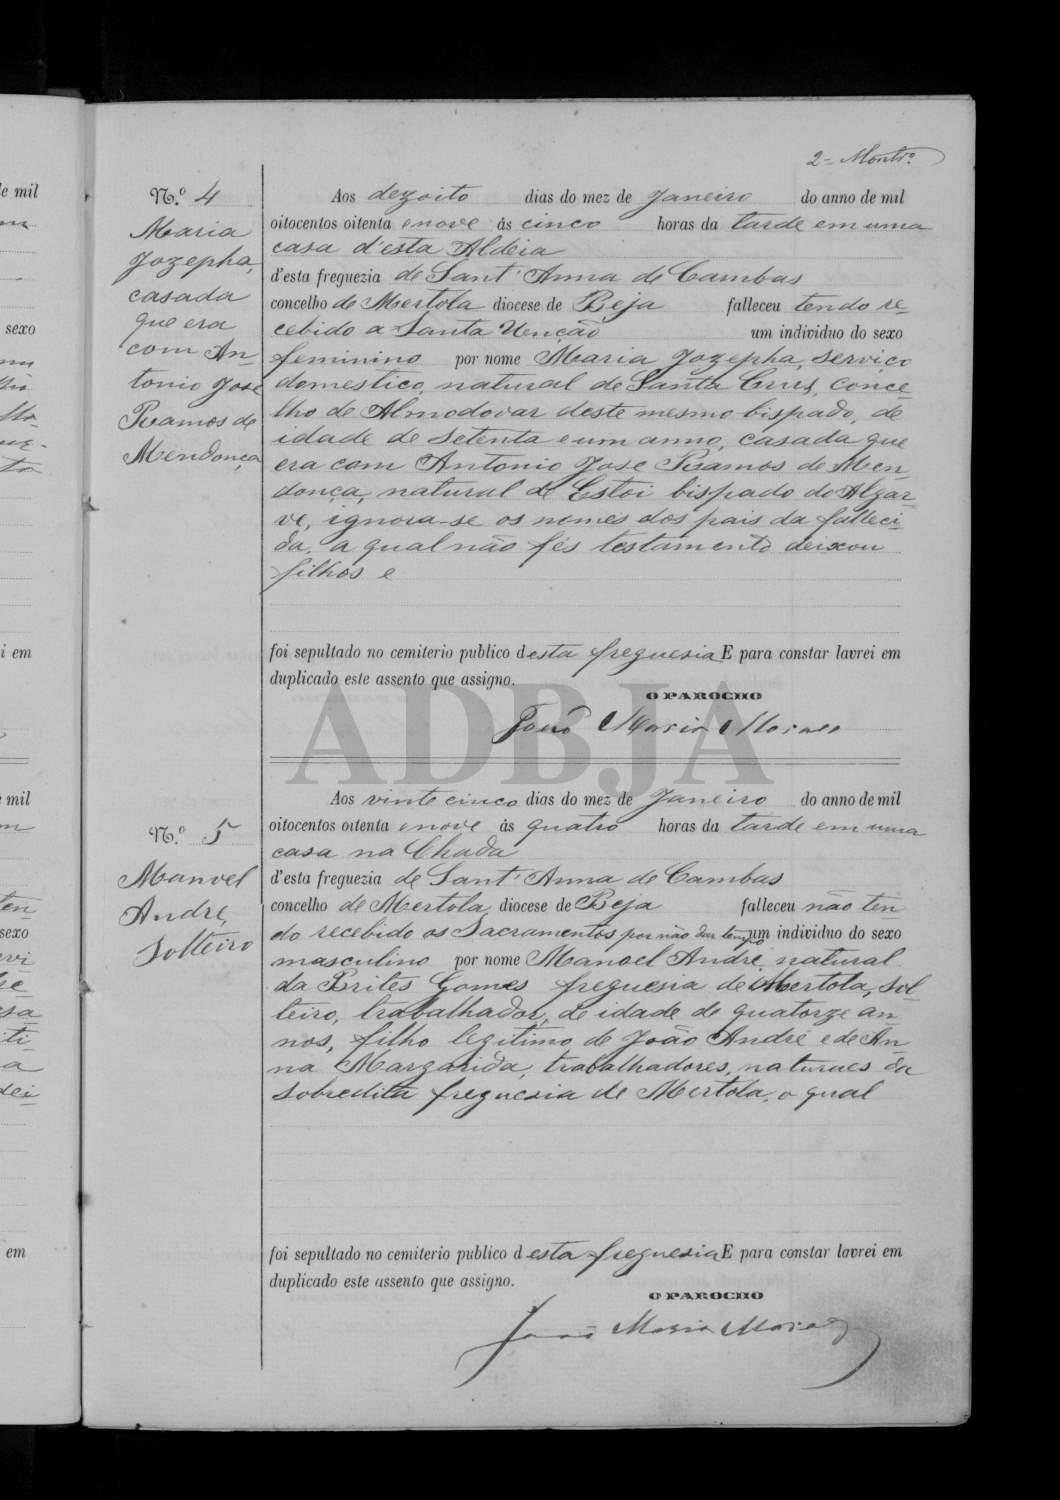 2= Montr.º
N.º 4
Maria
Jozepha,
casada
que era
com An-
tonio Jose
Ramos de
Mendonça
Aos dezoito dias do mez de Janeiro do anno de mil
oitocentos oitenta e nove ás cinco horas da tarde em uma
casa d'esta Aldeia
d'esta freguezia de Sant'Anna de Cambas
concelho de Mertola diocese de Beja falleceu tendo re-
cebido a Santa Uenção um individuo do sexo
feminino por nome Maria Jozepha, serviço
domestico, natural de Santa Crus, conce-
lho de Almodovar deste mesmo bispado, de
idade de setenta e um anno, casada que
era com Antonio Jose Ramos de Men-
donça, natural de Estoi bispado do Algar-
ve, ignora-se os nomes dos pais da falleci-
da, a qual não fés testamento deixou
filhos e
foi sepultado no cemiterio publico desta freguesia E para constar lavrei em
duplicado este assento que assigno.
O PAROCHO
João Maria Moraes
ADBJA
N.º 5
Manoel
Andre,
Solteiro
Aos vinte cinco dias do mez de Janeiro do anno de mil
oitocentos oitenta e nove ás quatro horas da tarde em uma
casa na Chada
d'esta freguezia de Sant'Anna de Cambas
concelho de Mertola, diocese de Beja falleceu não ten
do recebido os Sacramentos por não dar tempo um individuo do sexo
masculino por nome Manoel André, natural
da Brites Gomes freguesia de Mertola, sol-
teiro, trabalhador, de idade de quatorze an-
nos, filho legitimo de João André e de An-
na Margarida, trabalhadores, naturaes da
sobredita freguesia de Mertola, o qual
foi sepultado no cemiterio publico desta freguesia E para constar lavrei em
duplicado este assento que assigno.
O PAROCHO
João Maria Moraes